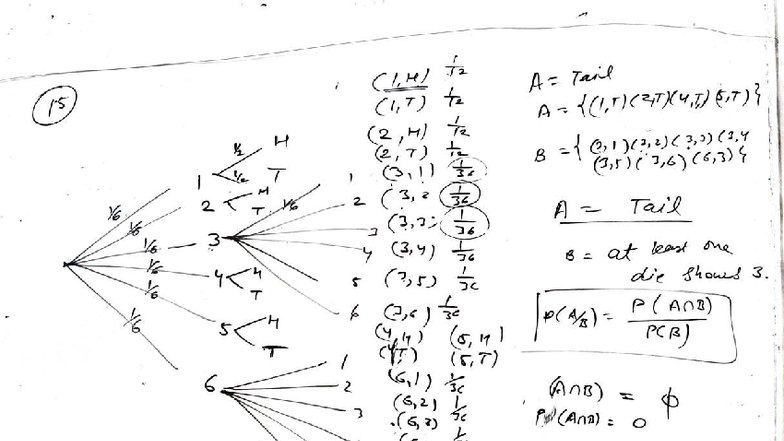 15
1/6
1/6
1/6
1/6
1/6
1/6
1
1/2 H
1/2 T
2
H
T
3
1/6
1
2
3
4
5
6
4
H
T
5
H
T
6
1
2
3
(1,H) 1/12
(1,T) 1/12
(2,H) 1/12
(2,T) 1/12
(3,1) 1/36
(3,2 1/36
(3,3) 1/36
(3,4) 1/36
(3,5) 1/36
(3,6) 1/36
(4,H) (5,H)
(4,T) (5,T)
(6,1) 1/36
(6,2) 1/36
(6,3)
A = Tail
A = {(1,T)(2,T)(4,T)(5,T)}
B = { (3,1)(3,2)(3,3)(3,4
(3,5)(3,6)(6,3)}
A = Tail
B = at least one
die shows 3.
P(A/B) = P(A∩B)/P(B)
(A∩B) = ϕ
P(A∩B) = 0